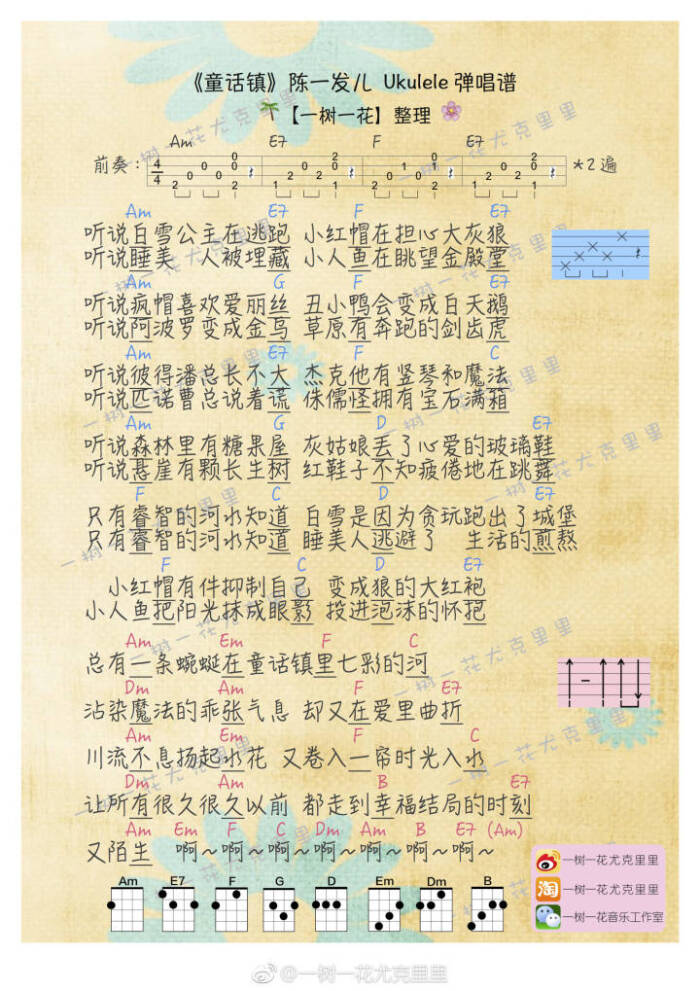 《童话镇》陈一发儿 Ukulele 弹唱谱
【一树一花】整理
Am E7 F E7
前奏: 4/4 *2遍
Am E7 F E7
听说白雪公主在逃跑 小红帽在担心大灰狼
听说睡美 人被埋藏 小人鱼在眺望金殿堂
Am G F E7
听说疯帽喜欢爱丽丝 丑小鸭会变成白天鹅
听说阿波罗变成金乌 草原有奔跑的剑齿虎
Am E7 F C
听说彼得潘总长不大 杰克他有竖琴和魔法
听说匹诺曹总说着谎 侏儒怪拥有宝石满箱
Am G D E7
听说森林里有糖果屋 灰姑娘丢了心爱的玻璃鞋
听说悬崖有颗长生树 红鞋子不知疲倦地在跳舞
F C D E7
只有睿智的河水知道 白雪是因为贪玩跑出了城堡
只有睿智的河水知道 睡美人逃避了 生活的煎熬
F C D E7
小红帽有件抑制自己 变成狼的大红袍
小人鱼把阳光抹成眼影 投进泡沫的怀抱
Am Em F C
总有一条蜿蜒在童话镇里七彩的河
Dm Am F E7
沾染魔法的乖张气息 却又在爱里曲折
Am Em F C
川流不息扬起水花 又卷入一帘时光入水
Dm Am B E7
让所有很久很久以前 都走到幸福结局的时刻
Am Em F C Dm Am B E7 (Am)
又陌生 啊~啊~啊~啊~啊~啊~啊~
Am E7 F G D Em Dm B
一树一花尤克里里
淘 一树一花尤克里里
一树一花音乐工作室
@一树一花尤克里里